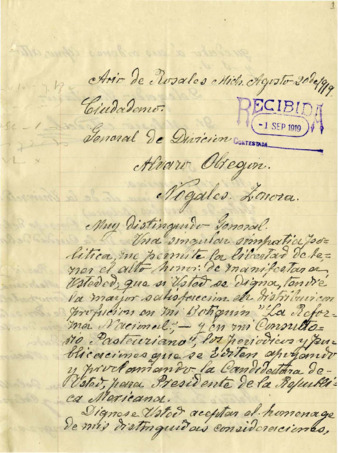 Ario de Rosales Mich. Agosto 20 de 1919
Ciudadano.
RECIBIDA
-1 SEP 1919
CONTESTADA
General de Division
Alvaro Obregon.
Nogales. Sonora.
Muy distinguido General
Una singular simpatia po-
litica, me permite la libertad de te-
ner el alto honor de manifestar a
Usted, que si Usted se digna, tendré
la mayor satisfaccion de distribuir con
profucion en mi Botiquin "La Refor-
ma Nacional," — y en mi Consulto-
rio Pasteuriano", los periodicos y pu-
blicaciones que se editen apoyando
y proclamando la Candidatura de
Usted, para Presidente de la Republi-
ca Mexicana.
Dignese Usted aceptar el homenage
de mis distinguidas consideraciones,